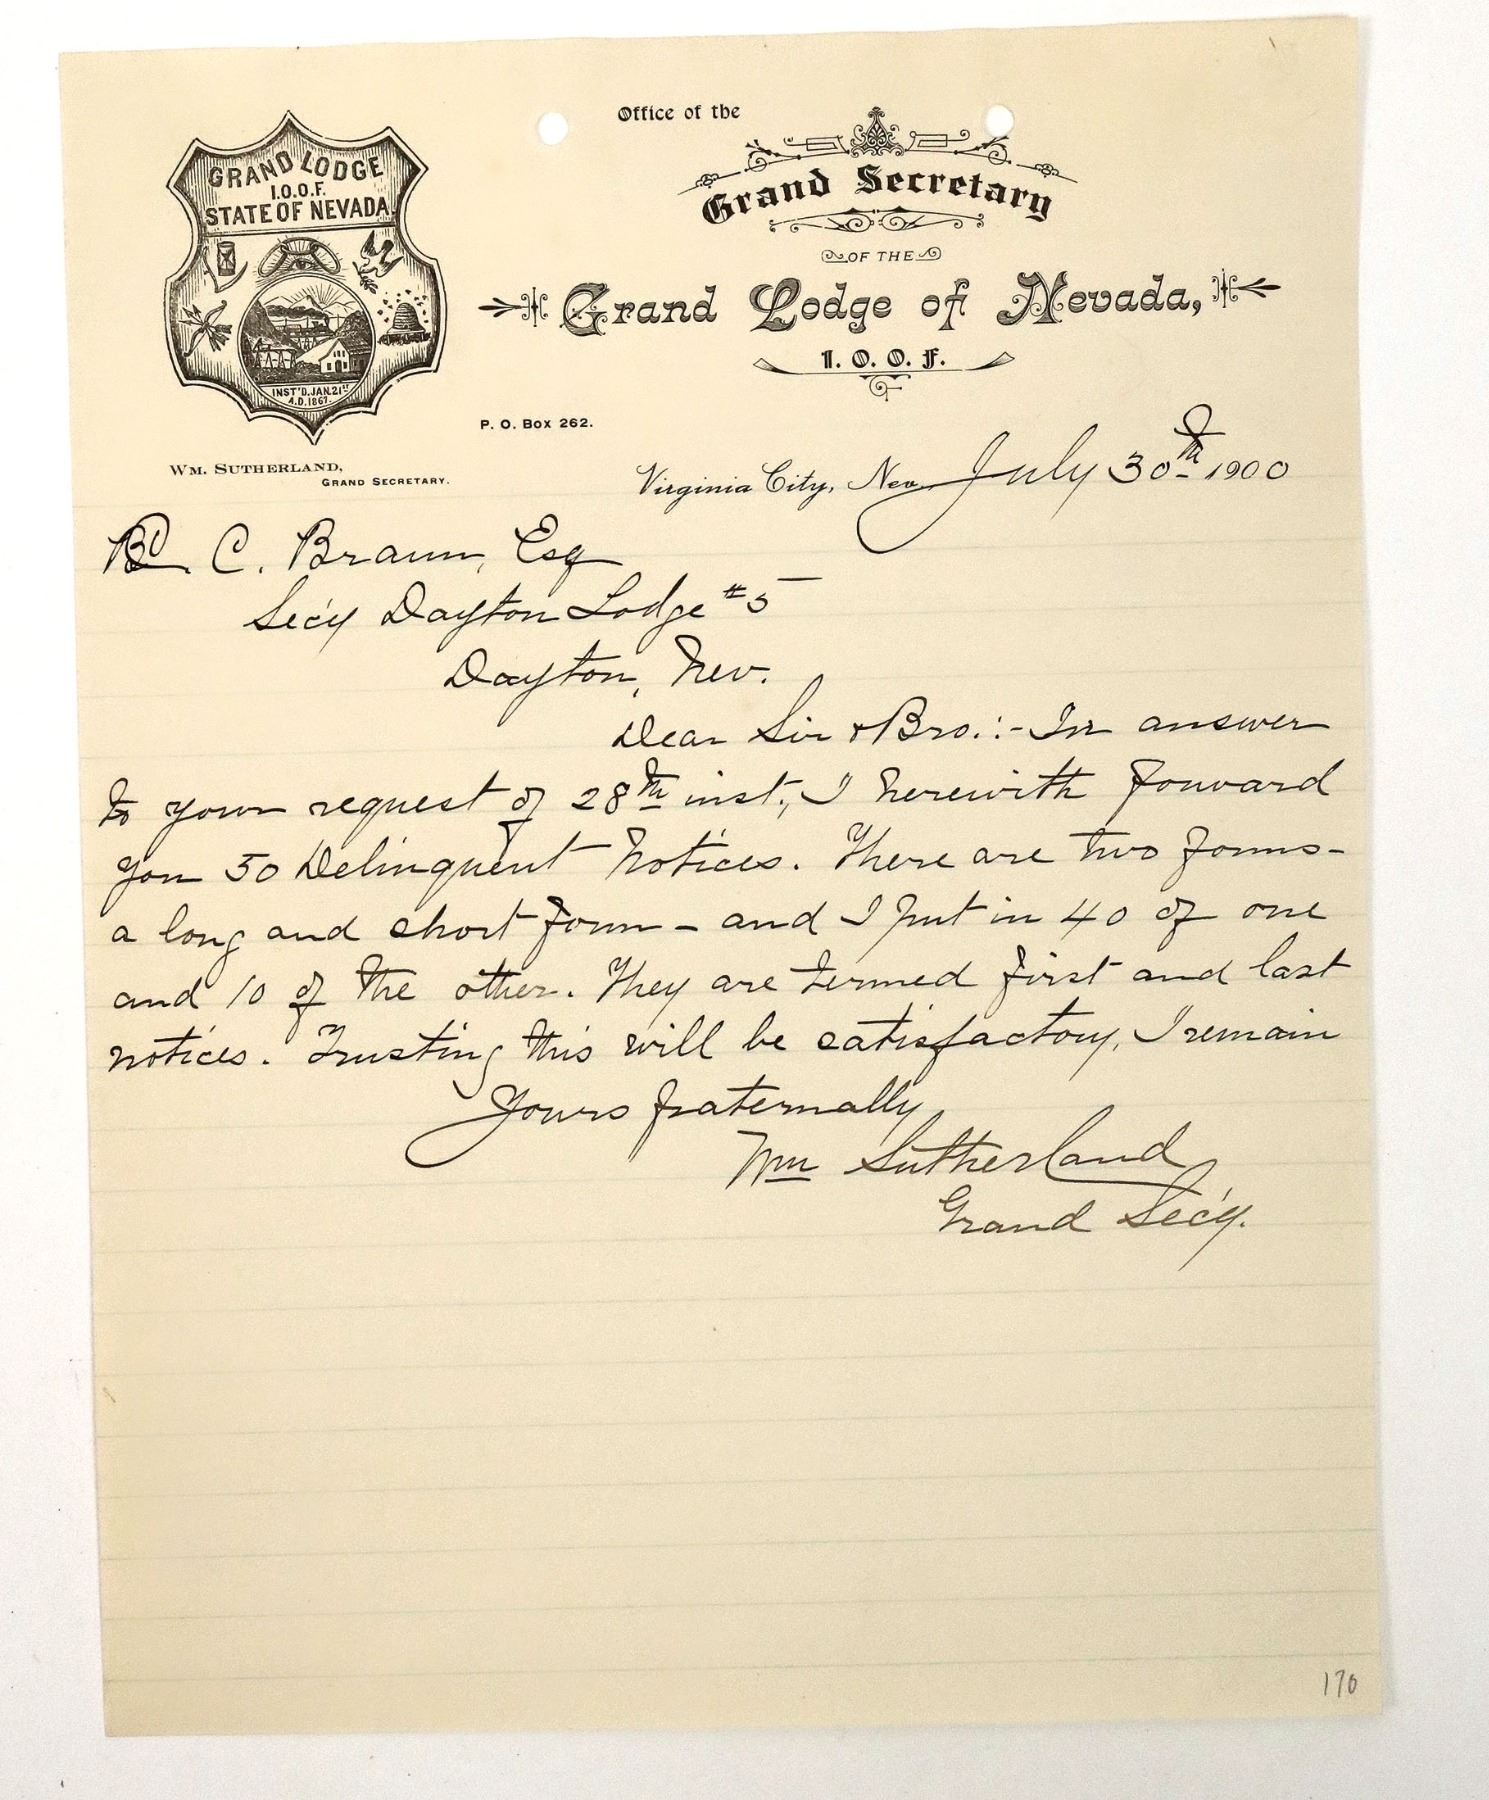 GRAND LODGE
I.O.O.F.
STATE OF NEVADA
INST'D. JAN. 21st
A.D. 1867.
Wm. Sutherland,
Grand Secretary.
Office of the
Grand Secretary
OF THE
Grand Lodge of Nevada,
I. O. O. F.
P. O. Box 262.
Virginia City, Nev. July 30th 1900
C. Braun, Esq
Sec'y Dayton Lodge #5
Dayton, Nev.
Dear Sir & Bro.:- In answer
to your request of 28th inst., I herewith forward
you 50 Delinquent Notices. There are two forms-
a long and short form - and I put in 40 of one
and 10 of the other. They are termed first and last
notices. Trusting this will be satisfactory, I remain
Yours fraternally
Wm Sutherland
Grand Sec'y.
170